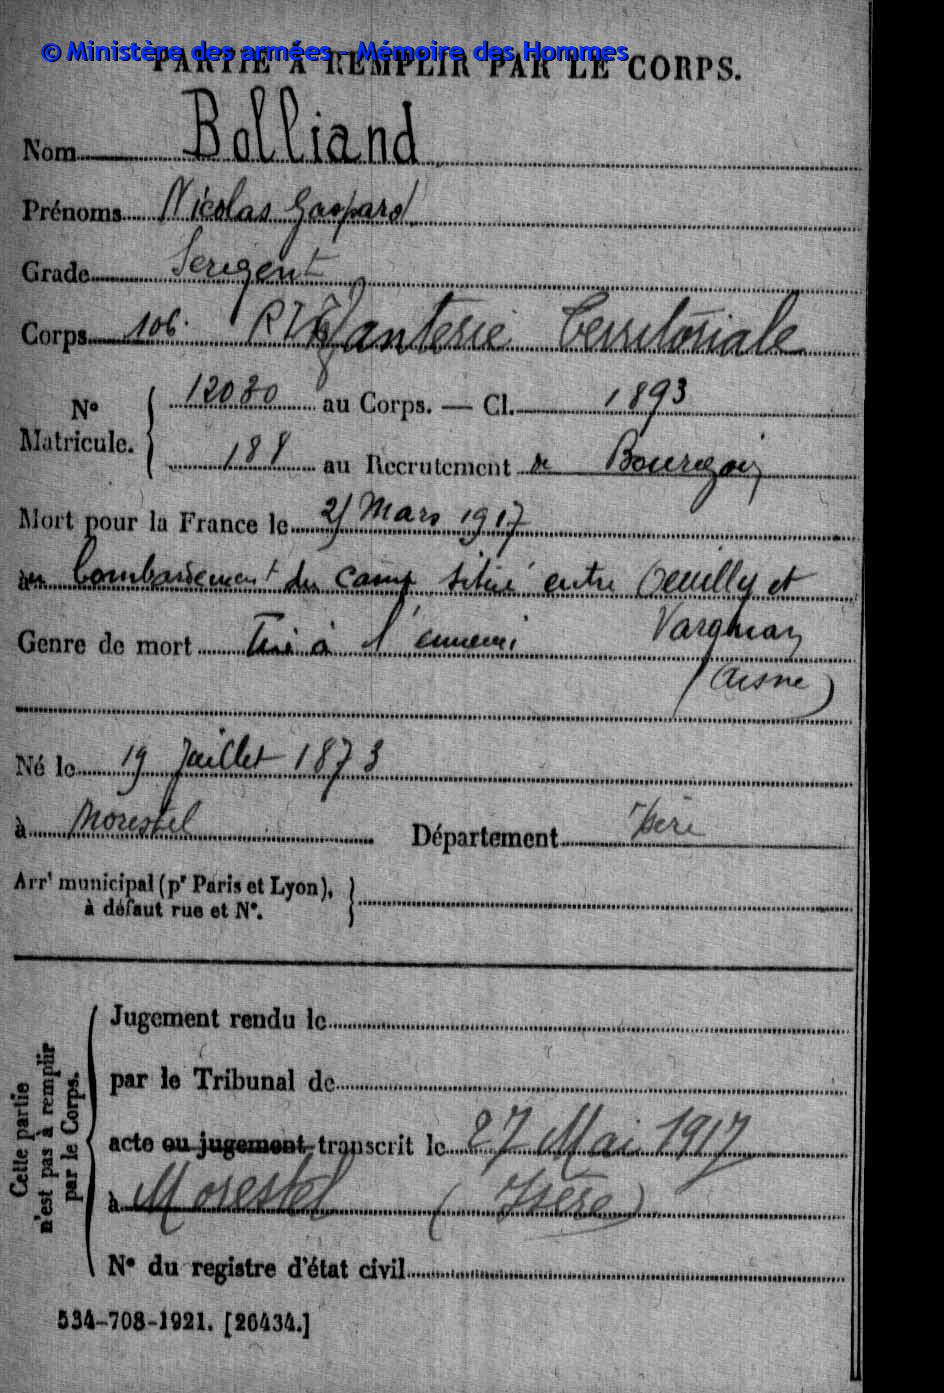 © Ministère des armées - Mémoire des Hommes
PARTIE À REMPLIR PAR LE CORPS.
Nom Bolliand
Prénoms Nicolas Gaspard
Grade Sergent
Corps 106. Infanterie Territoriale
N° Matricule. 12030 au Corps. — Cl. 1893
188 au Recrutement de Bourgoin
Mort pour la France le Mars 1917
au bombardement du camp situé entre Oeuilly et
Genre de mort Tué à l'ennemi
(Aisne)
Né le 19 Juillet 1873
à Morestel Département Isère
Arrt municipal (pr Paris et Lyon),
à défaut rue et N°.
Cette partie
n'est pas à remplir
par le Corps.
Jugement rendu le
par le Tribunal de
acte ou jugement transcrit le 27 Mai 1917
à Morestel (Isère)
N° du registre d'état civil
534-708-1921. [26434.]